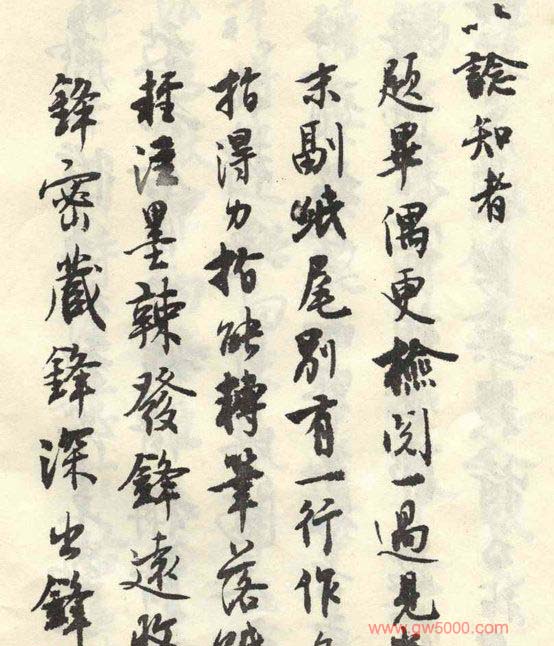 以諗知者
題畢偶更檢閱一過見
末副紙尾別有一行作
指得力指能轉筆落
墨辣發鋒遠收
鋒密藏鋒深出鋒
www.gw5000.com